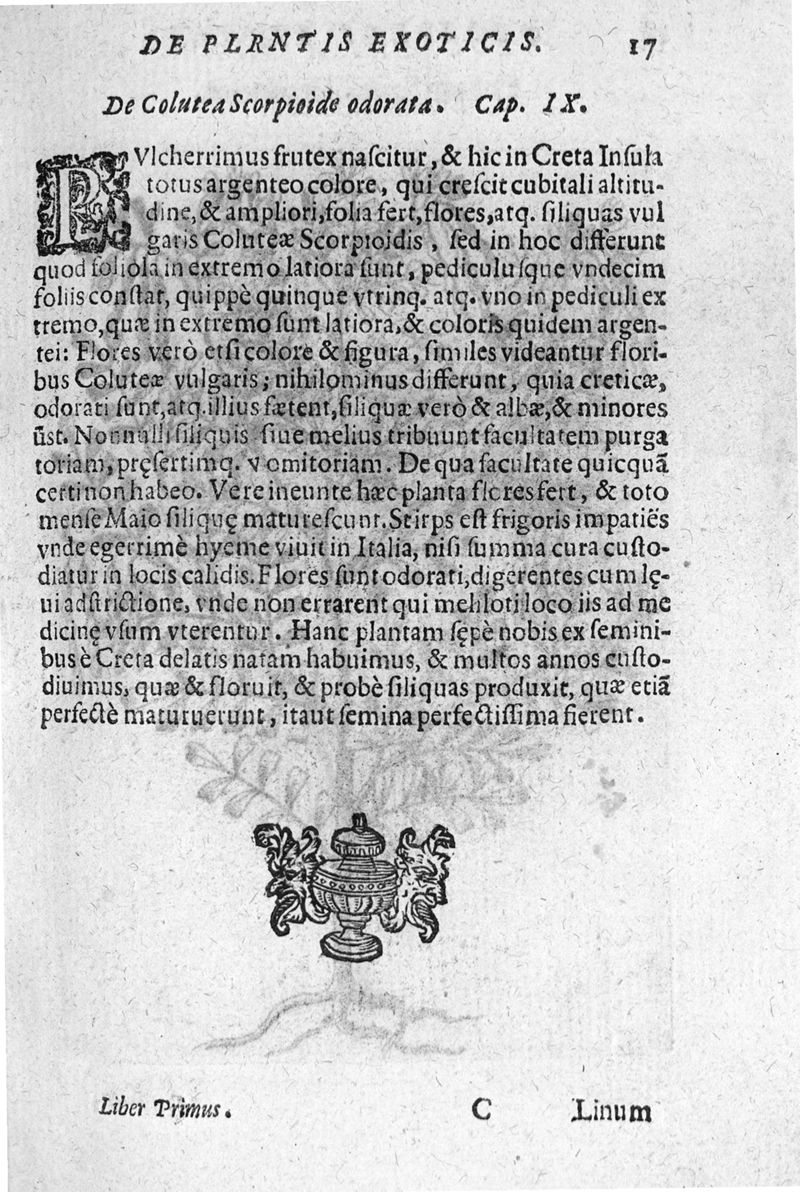 DE PLRNTIS EXOTICIS. 17
De Colutea Scorpioide odorata. Cap. IX.
PVlcherrimus frutex naſcitur, & hic in Creta Inſula
totus argenteo colore, qui creſcit cubitali altitu-
dine, & ampliori, folia fert, flores, atq. ſiliquas vul
garis Coluteæ Scorpioidis, ſed in hoc differunt
quod foliola in extremo latiora ſunt, pediculuſque vndecim
foliis conſtat, quippè quinque vtrinq. atq. vno in pediculi ex
tremo, quæ in extremo ſunt latiora, & coloris quidem argen-
tei: Flores verò etſi colore & figura, ſimiles videantur flori-
bus Coluteæ vulgaris; nihilominus differunt, quia creticæ,
odorati ſunt, atq. illius fætent, ſiliquæ verò & albæ, & minores
ūst. Nonnulli ſiliquis ſiue melius tribuunt facultatem purga
toriam, pręſertimq. vomitoriam. De qua facultate quicquã
certi non habeo. Vere ineunte hæc planta flores fert, & toto
menſe Maio ſiliquę matureſcunt. Stirps eſt frigoris impatiẽs
vnde egerrimè hyeme viuit in Italia, niſi ſumma cura cuſto-
diatur in locis calidis. Flores ſunt odorati, digerentes cum lę-
ui adſtrictione, vnde non errarent qui meliloti loco iis ad me
dicinę vſum vterentur. Hanc plantam ſępè nobis ex ſemini-
bus è Creta delatis natam habuimus, & multos annos cuſto-
diuimus, quæ & floruit, & probè ſiliquas produxit, quæ etiã
perfectè maturuerunt, itaut ſemina perfectiſſima fierent.
Liber Primus. C Linum